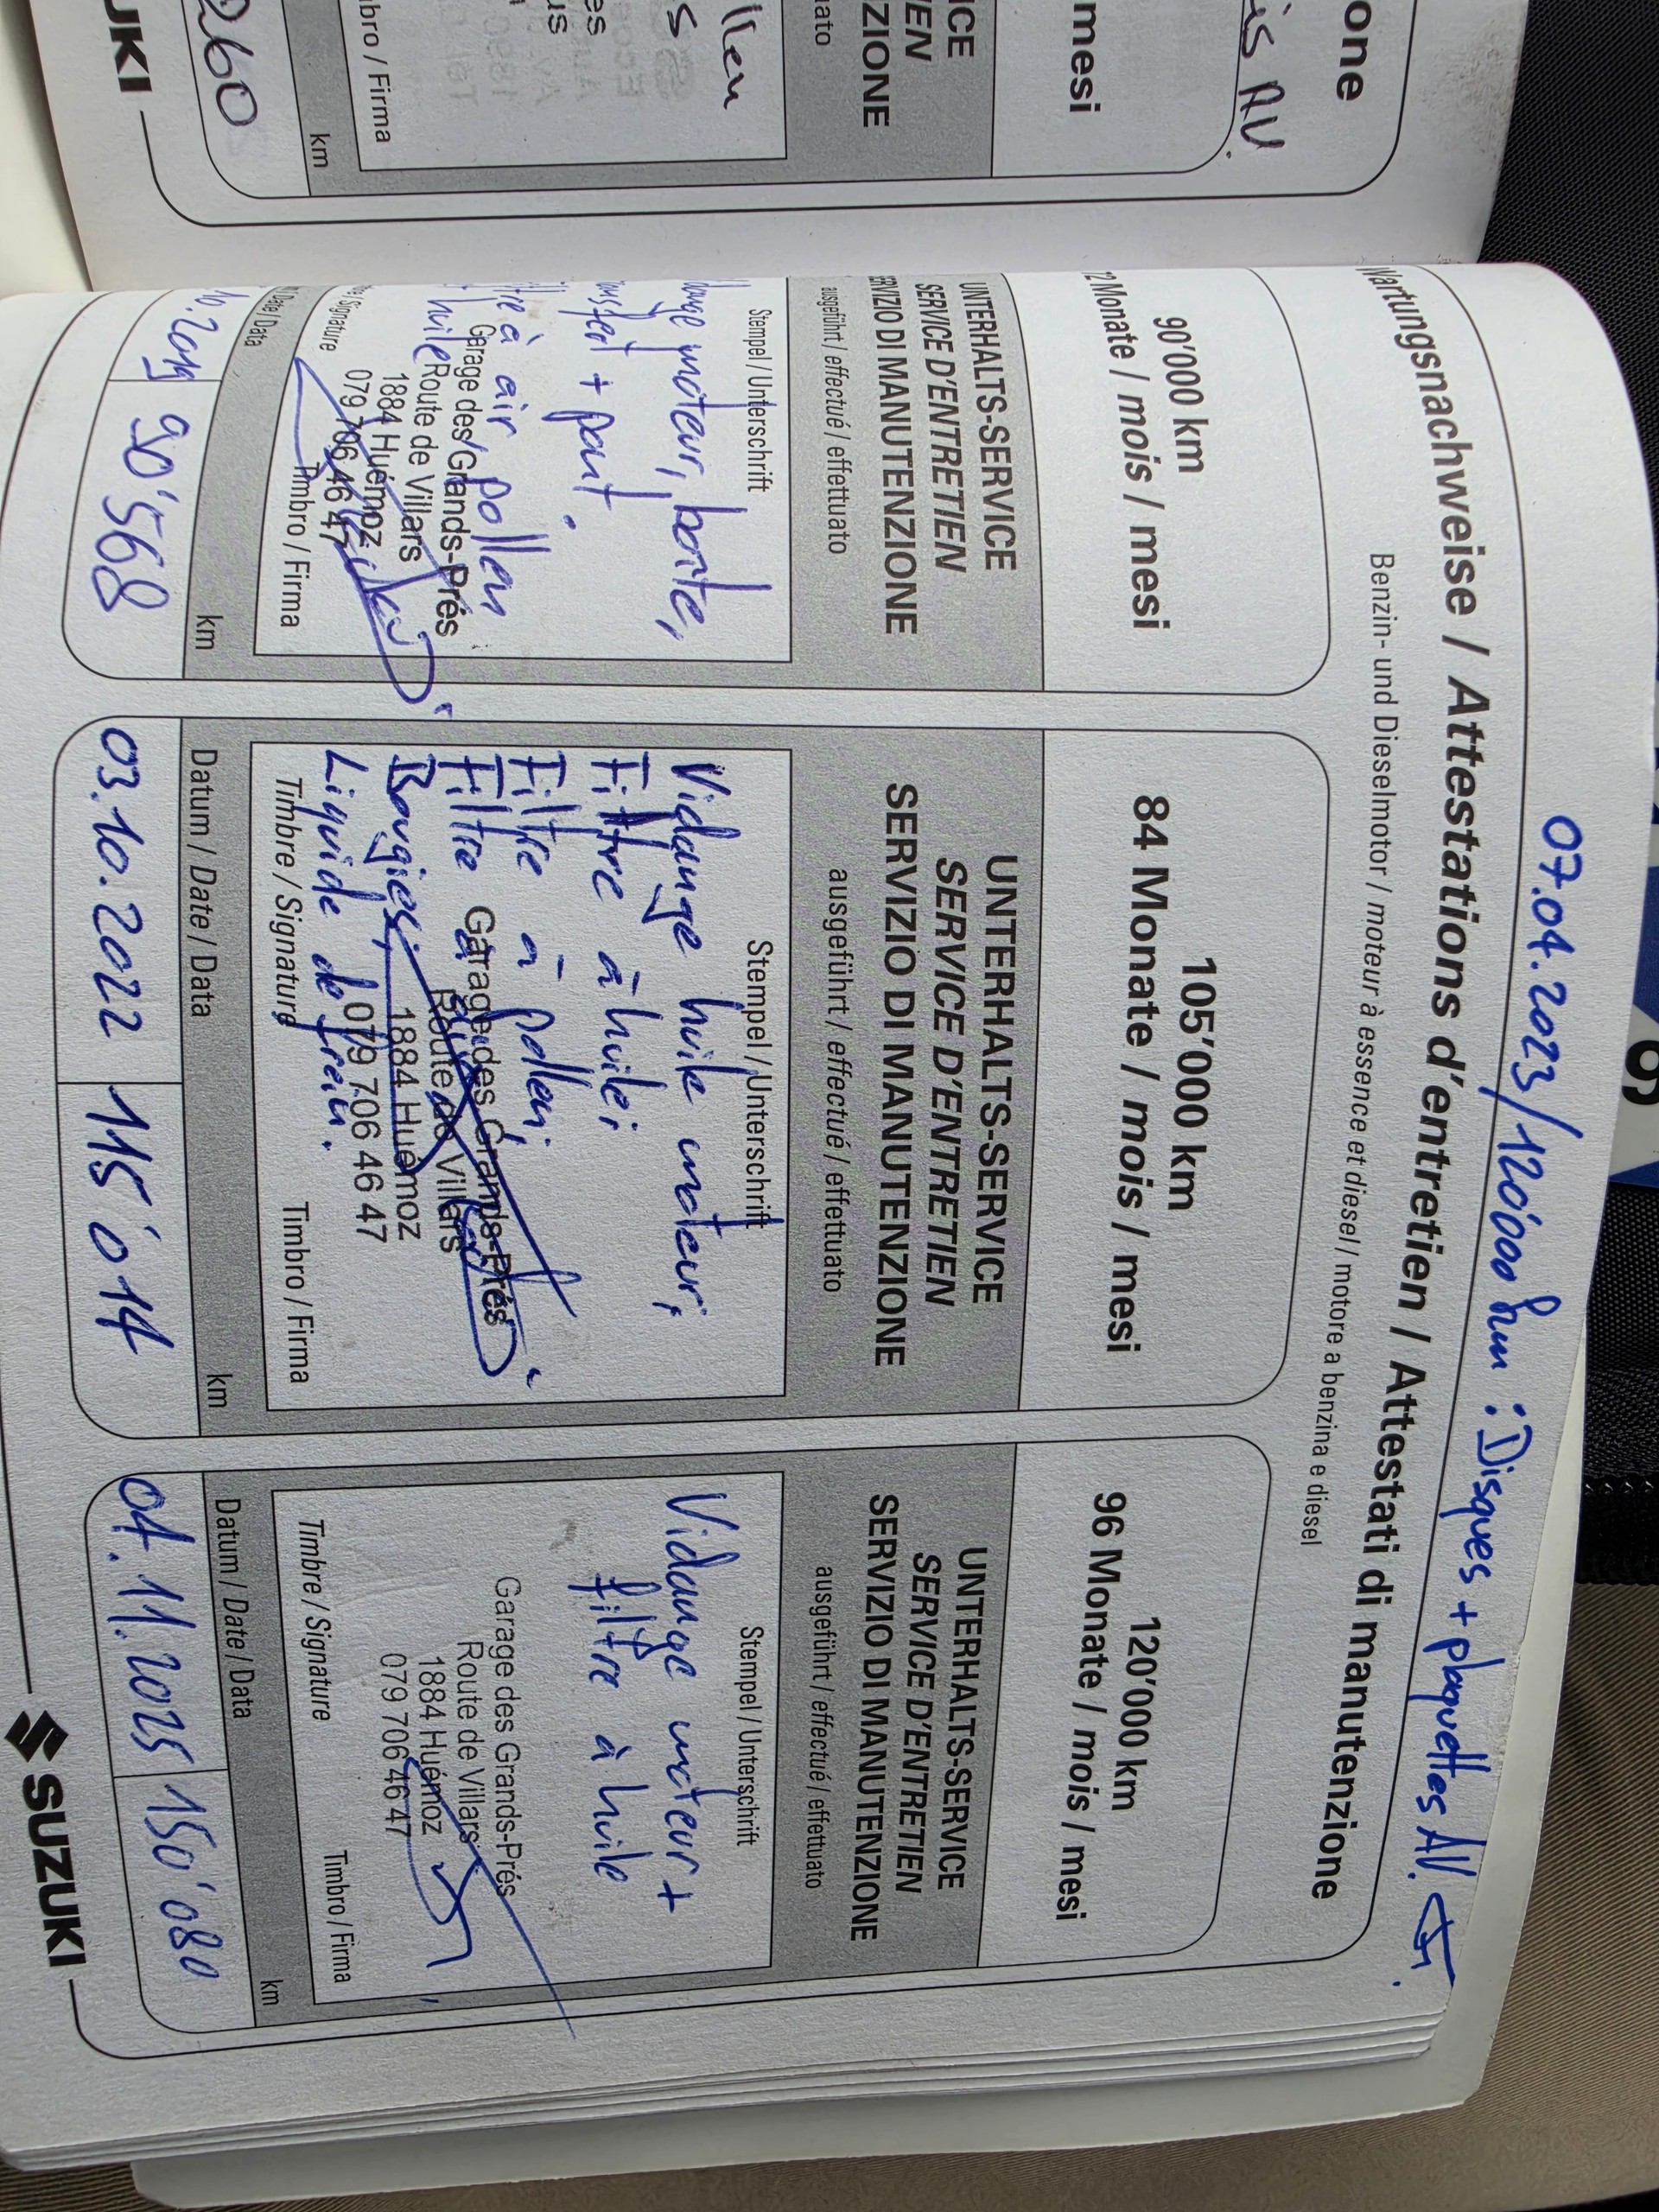 one
is AV.
mesi
ICE
IEN
ZIONE
ato
llen
s
es
us
bro / Firma
km
260
UKI
07.04.2023/120'000 km : Disques + plaquettes AV.
Wartungsnachweise / Attestations d'entretien / Attestati di manutenzione
Benzin- und Dieselmotor / moteur à essence et diesel / motore a benzina e diesel
90'000 km
72 Monate / mois / mesi
UNTERHALTS-SERVICE
SERVICE D'ENTRETIEN
SERVIZIO DI MANUTENZIONE
ausgeführt / effectué / effettuato
Stempel / Unterschrift
moteur, boîte,
+ pont.
à air, pollen
huile
Garage des Grands-Prés
Route de Villars
1884 Huémoz
079 706 46 47
Signature Timbro / Firma
Date / Data km
10.2019 90'568
105'000 km
84 Monate / mois / mesi
UNTERHALTS-SERVICE
SERVICE D'ENTRETIEN
SERVIZIO DI MANUTENZIONE
ausgeführt / effectué / effettuato
Stempel / Unterschrift
Vidange huile moteur,
Filtre à huile,
Filtre à pollen,
Filtre à
Bougies,
Liquide de frein.
Garage des Grands-Prés
Route de Villars
1884 Huémoz
079 706 46 47
Timbre / Signature Timbro / Firma
Datum / Date / Data km
03.10.2022 115'014
120'000 km
96 Monate / mois / mesi
UNTERHALTS-SERVICE
SERVICE D'ENTRETIEN
SERVIZIO DI MANUTENZIONE
ausgeführt / effectué / effettuato
Stempel / Unterschrift
Vidange moteur +
filtre à huile
Garage des Grands-Prés
Route de Villars
1884 Huémoz
079 706 46 47
Timbre / Signature Timbro / Firma
Datum / Date / Data km
04.11.2025 150'080
SUZUKI
9